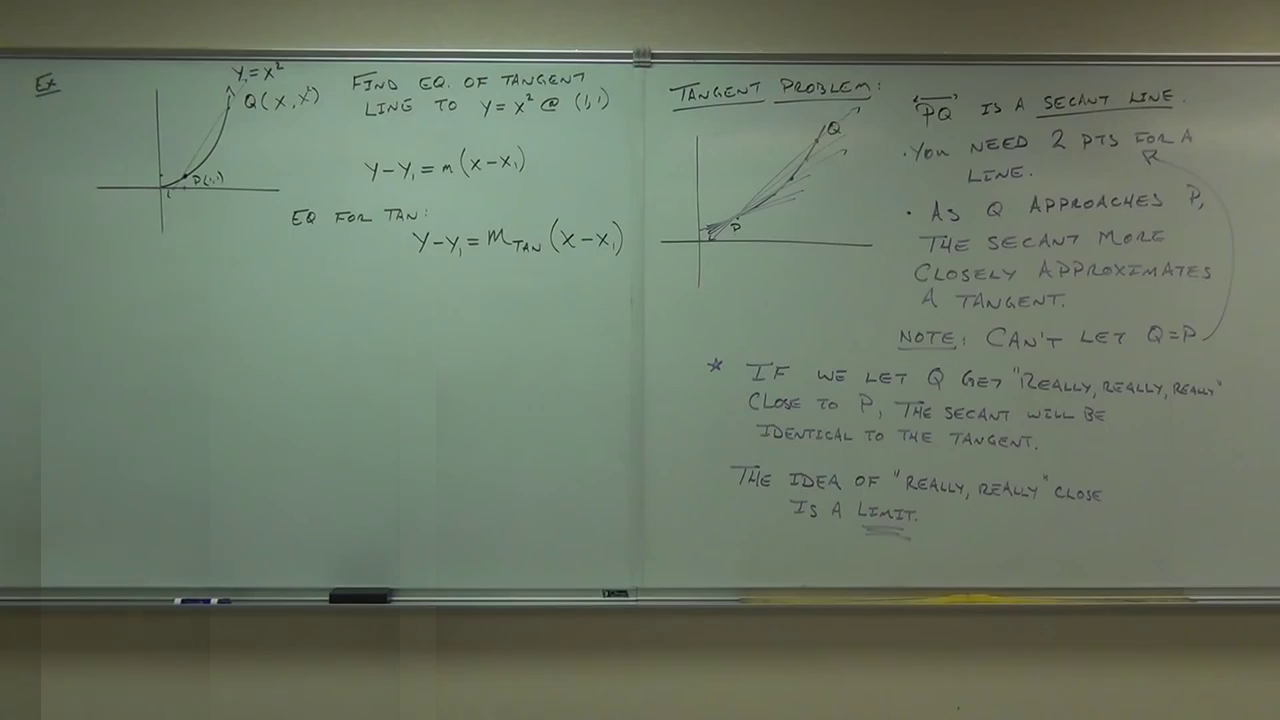 Ex
Y=X²
Q(X, X²)
P(1,1)
FIND EQ. OF TANGENT
LINE TO Y=X² @ (1,1)
Y-Y₁=m(X-X₁)
EQ FOR TAN:
Y-Y₁=M_TAN(X-X₁)
TANGENT PROBLEM:
Q
P
"PQ" IS A SECANT LINE.
·YOU NEED 2 PTS FOR A
LINE.
· AS Q APPROACHES P,
THE SECANT MORE
CLOSELY APPROXIMATES
A TANGENT.
NOTE: CAN'T LET Q=P
* IF WE LET Q GET "REALLY, REALLY, REALLY"
CLOSE TO P, THE SECANT WILL BE
IDENTICAL TO THE TANGENT.
THE IDEA OF "REALLY, REALLY" CLOSE
IS A LIMIT.